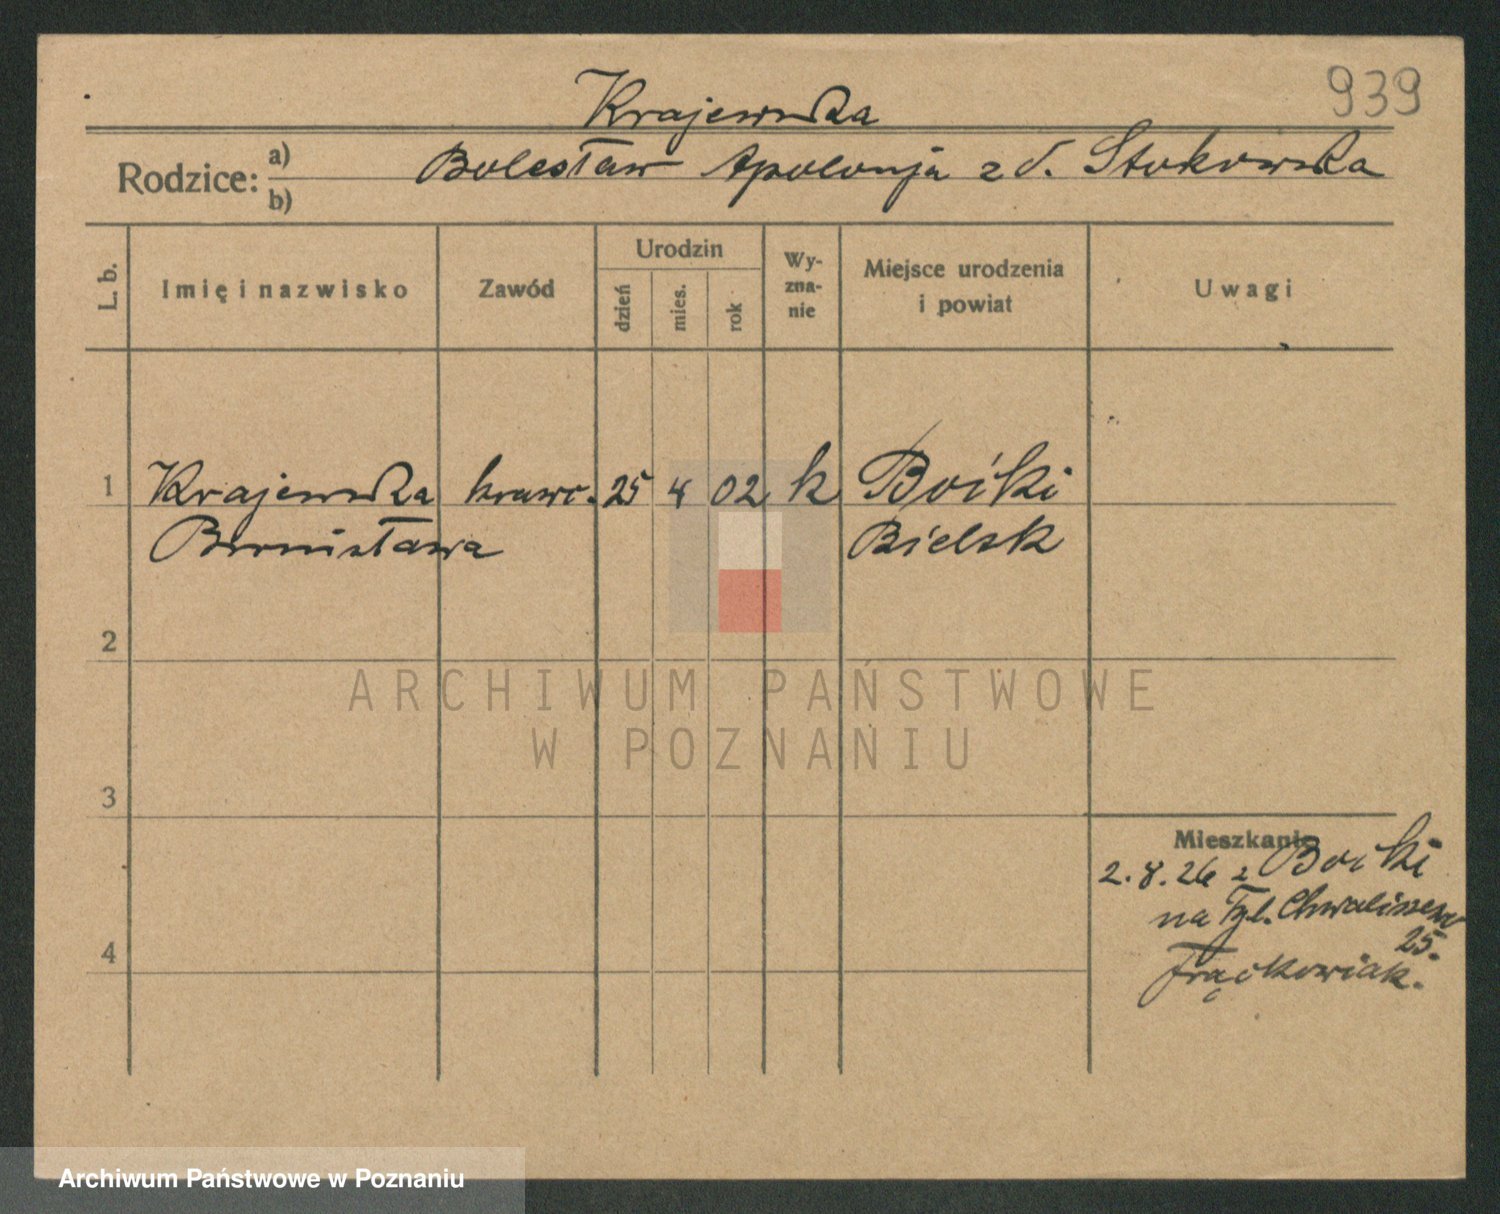 939
Krajewska
Rodzice: a) Bolesław Apolonja z d. Stokowska
b)
L. b. Imię i nazwisko Zawód Urodzin dzień mies. rok Wy-zna-nie Miejsce urodzenia i powiat Uwagi
1 Krajewska krawc. 25 4 02 k Boćki
Bronisława Bielsk
2
ARCHIWUM PAŃSTWOWE
W POZNANIU
3
Mieszkanie
2.8.26 z Boćki
na Tyl. Chwaliszew
25.
4
Frąckowiak.
Archiwum Państwowe w Poznaniu